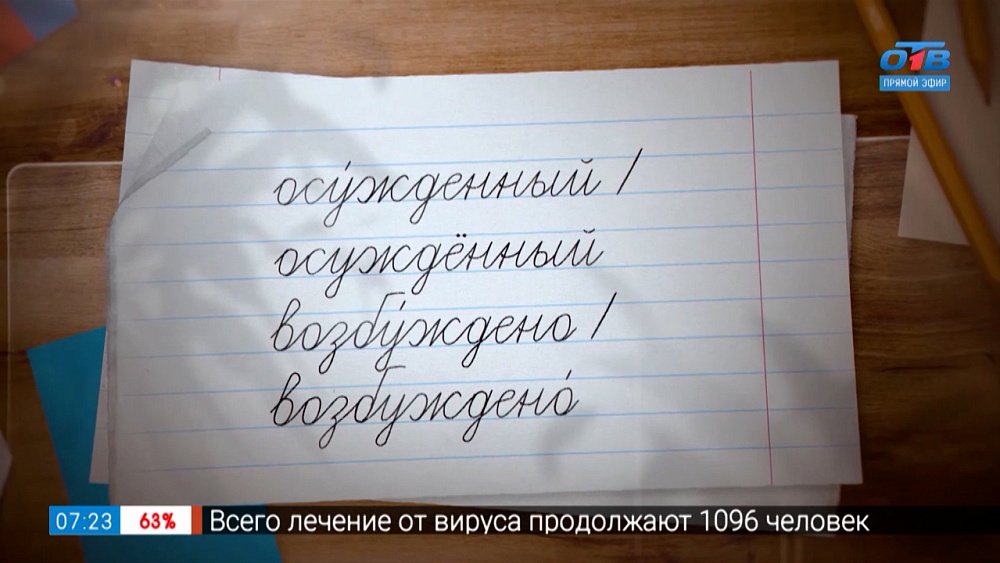 ОТВ
ПРЯМОЙ ЭФИР
осу́жденный /
осуждённый
возбу́ждено /
возбуждено́
07:23 63% Всего лечение от вируса продолжают 1096 человек